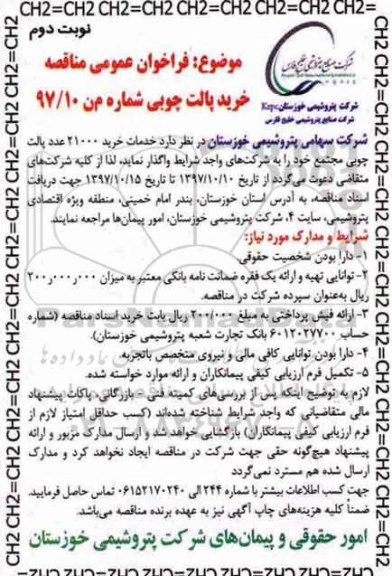 CH2=CH2 CH2=CH2 CH2=CH2 CH2=CH2 CH2=
نوبت دوم
موضوع: فراخوان عمومی مناقصه
خرید پالت چوبی شماره م‌ن ۹۷/۱۰
شرکت صنایع پتروشیمی خلیج فارس
شرکت پتروشیمی خوزستان Kzpc
شرکت صنایع پتروشیمی خلیج فارس
شرکت سهامی پتروشیمی خوزستان در نظر دارد خدمات خرید ۲۱۰۰۰ عدد پالت
چوبی مجتمع خود را به شرکت‌های واجد شرایط واگذار نماید، لذا از کلیه شرکت‌های
متقاضی دعوت می‌گردد از تاریخ ۱۳۹۷/۱۰/۱۰ تا تاریخ ۱۳۹۷/۱۰/۱۵ جهت دریافت
اسناد مناقصه، به آدرس استان خوزستان، بندر امام خمینی، منطقه ویژه اقتصادی
پتروشیمی، سایت ۴، شرکت پتروشیمی خوزستان، امور پیمان‌ها مراجعه نمایند.
شرایط و مدارک مورد نیاز:
۱- دارا بودن شخصیت حقوقی.
۲- توانایی تهیه و ارائه یک فقره ضمانت نامه بانکی معتبر به میزان ۲۰۰ر۰۰۰ر۰۰۰
ریال به‌عنوان سپرده شرکت در مناقصه.
۳- ارائه فیش پرداختی به مبلغ ۲۰۰/۰۰۰ ریال بابت خرید اسناد مناقصه (شماره
حساب ۶۰۱۲۰۲۷۷۰۰ بانک تجارت شعبه پتروشیمی خوزستان).
۴- دارا بودن توانایی کافی مالی و نیروی متخصص باتجربه.
۵- تکمیل فرم ارزیابی کیفی پیمانکاران و ارائه موارد خواسته شده.
لازم به توضیح اینکه پس از بررسی‌های کمیته فنی - بازرگانی، پاکات پیشنهاد
مالی متقاضیانی که واجد شرایط شناخته شده‌اند (کسب حداقل امتیاز لازم از
فرم ارزیابی کیفی پیمانکاران) بازگشایی خواهد شد و ارسال مدارک مزبور و ارائه
پیشنهاد هیچ‌گونه حقی جهت شرکت در مناقصه ایجاد نخواهد کرد و مدارک
ارسال شده هم مسترد نمی‌گردد.
جهت کسب اطلاعات بیشتر با شماره ۲۴۴ الی ۰۶۱۵۲۱۷۰۲۴۰ تماس حاصل فرمایید.
ضمنا کلیه هزینه‌های چاپ آگهی نیز به عهده برنده مناقصه می‌باشد.
امور حقوقی و پیمان‌های شرکت پتروشیمی خوزستان